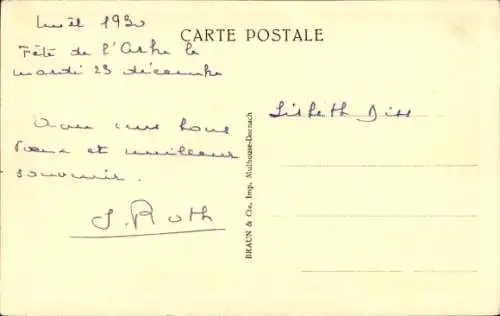 CARTE POSTALE
Noël 1930
Fête de l'Arbre le
mardi 23 décembre
Avec mes bons
vœux et meilleur
souvenir.
J. Roth
BRAUN & Cie, Imp. Mulhouse-Dornach
Lisbeth Diss